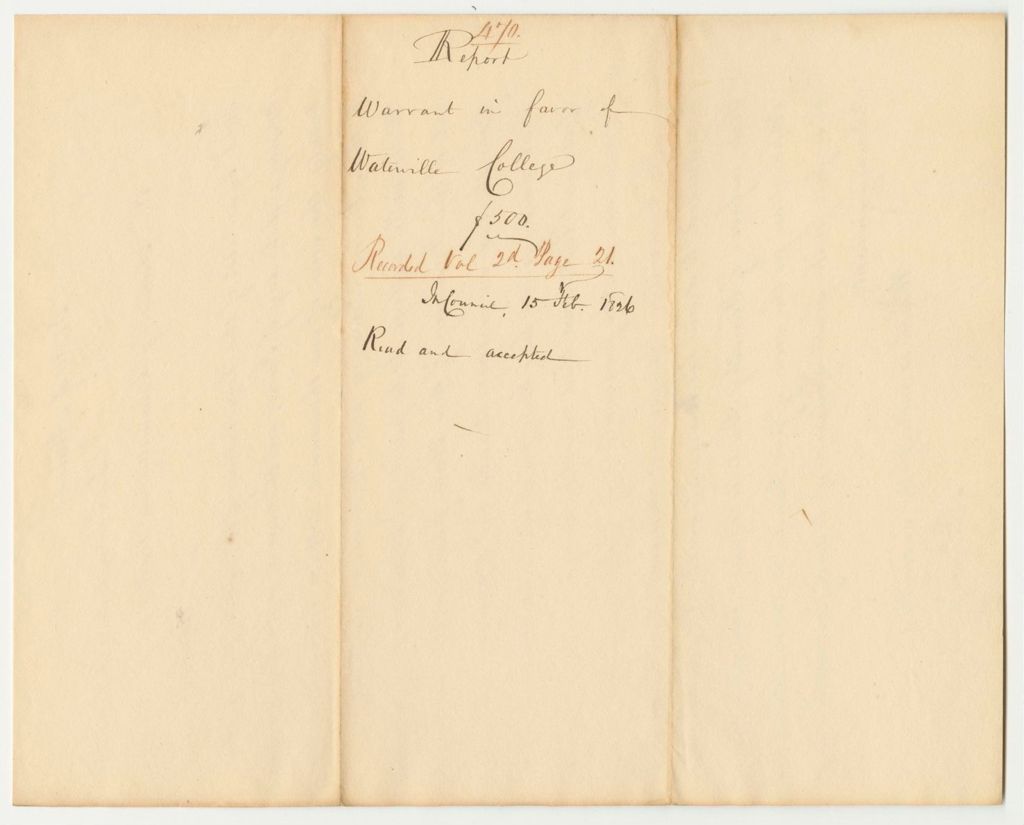 470.
Report
Warrant in favor of
Waterville College
$500.
Recorded Vol 2d. Page 21.
In Council, 15 Feb. 1826
Read and accepted